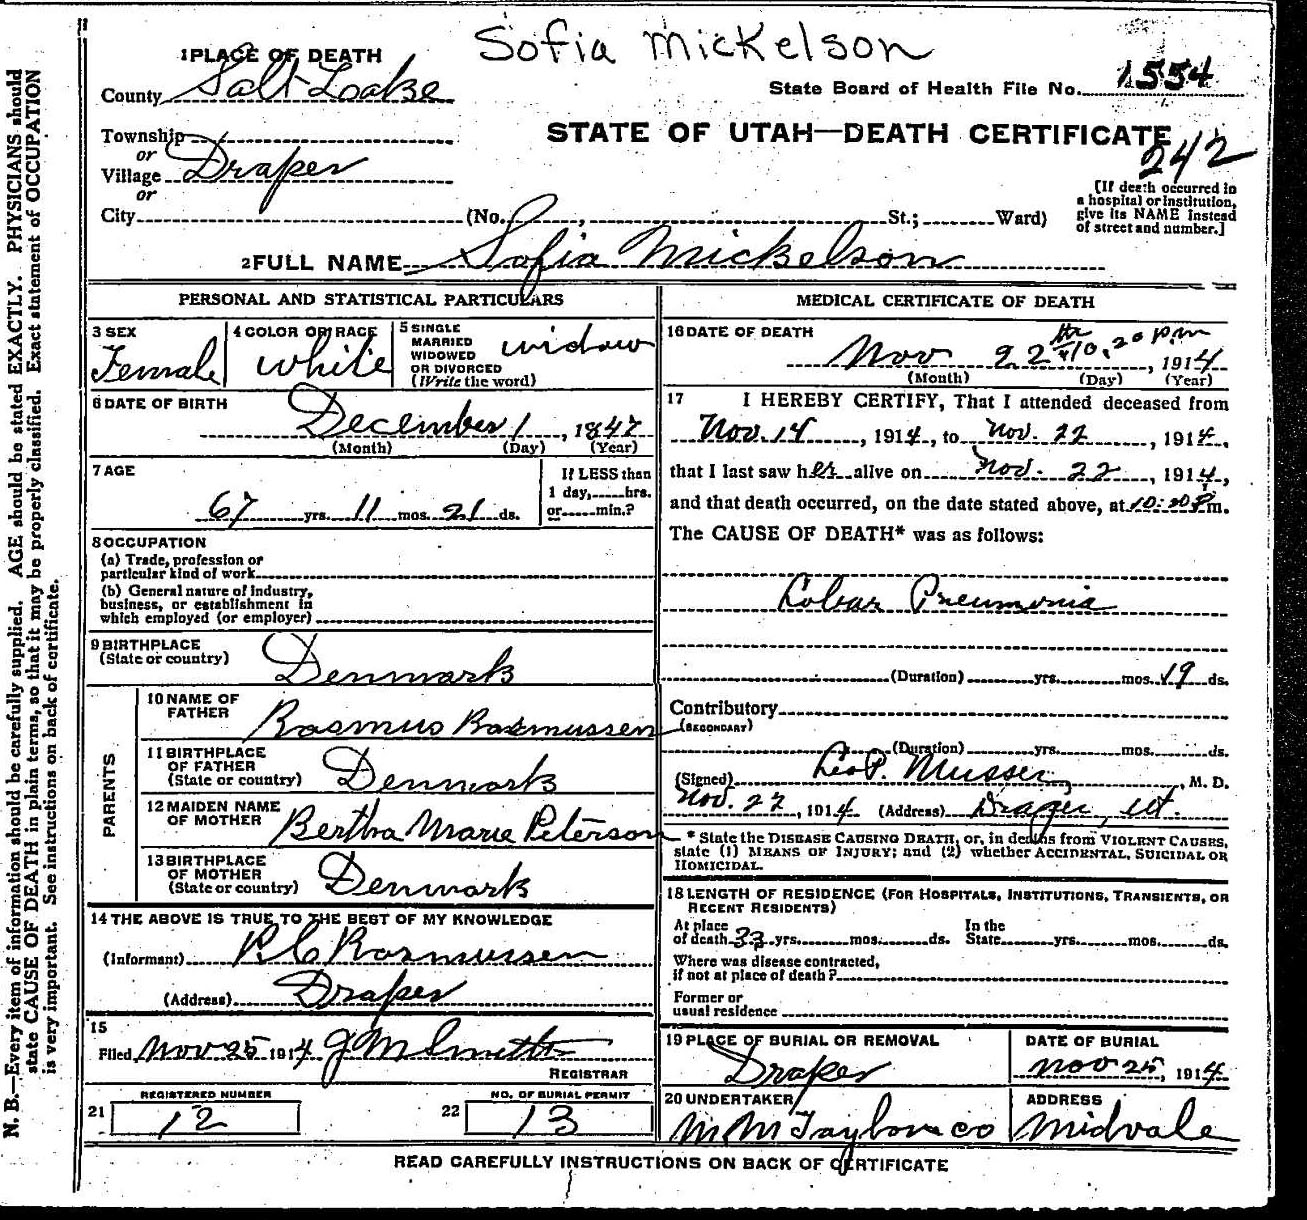 Sofia Mickelson
1 PLACE OF DEATH
County Salt Loake
State Board of Health File No. 1554
STATE OF UTAH—DEATH CERTIFICATE
242
Township
or
Village Draper
or
City (No. , St.; Ward)
[If death occurred in
a hospital or institution,
give its NAME instead
of street and number.]
2 FULL NAME Sofia Mickelson
PERSONAL AND STATISTICAL PARTICULARS
3 SEX Female
4 COLOR OR RACE white
5 SINGLE
MARRIED
WIDOWED
OR DIVORCED
(Write the word)
widow
6 DATE OF BIRTH
December 1, 1847
(Month) (Day) (Year)
7 AGE
67 yrs. 11 mos. 21 ds.
If LESS than
1 day, hrs.
or min.?
8 OCCUPATION
(a) Trade, profession or
particular kind of work
(b) General nature of industry,
business, or establishment in
which employed (or employer)
9 BIRTHPLACE
(State or country) Denmark
PARENTS
10 NAME OF
FATHER Rasmus Rasmussen
11 BIRTHPLACE
OF FATHER
(State or country) Denmark
12 MAIDEN NAME
OF MOTHER Bertha Marie Peterson
13 BIRTHPLACE
OF MOTHER
(State or country) Denmark
14 THE ABOVE IS TRUE TO THE BEST OF MY KNOWLEDGE
(Informant) P. C Rasmussen
(Address) Draper
15
Filed Nov 25 1914 J M Smith
REGISTRAR
REGISTERED NUMBER
21 12
NO. OF BURIAL PERMIT
22 13
MEDICAL CERTIFICATE OF DEATH
16 DATE OF DEATH
Nov 22th 10,20 pm, 1914
(Month) (Day) (Year)
17 I HEREBY CERTIFY, That I attended deceased from
Nov. 14, 1914, to Nov. 22, 1914,
that I last saw her alive on Nov. 22, 1914,
and that death occurred, on the date stated above, at 10:20 P.m.
The CAUSE OF DEATH* was as follows:
Lobar Pneumonia
(Duration) yrs. mos. 19 ds.
Contributory
(SECONDARY)
(Duration) yrs. mos. ds.
(Signed) Leo P. Musser, M. D.
Nov. 22, 1914 (Address) Draper, Ut.
* State the DISEASE CAUSING DEATH, or, in deaths from VIOLENT CAUSES,
state (1) MEANS OF INJURY; and (2) whether ACCIDENTAL, SUICIDAL OR
HOMICIDAL.
18 LENGTH OF RESIDENCE (FOR HOSPITALS, INSTITUTIONS, TRANSIENTS, OR
RECENT RESIDENTS)
At place
of death 33 yrs. mos. ds.
In the
State yrs. mos. ds.
Where was disease contracted,
if not at place of death?
Former or
usual residence
19 PLACE OF BURIAL OR REMOVAL
Draper
DATE OF BURIAL
Nov 25, 1914
20 UNDERTAKER
M M Taylor co
ADDRESS
Midvale
READ CAREFULLY INSTRUCTIONS ON BACK OF CERTIFICATE
N. B.—Every item of information should be carefully supplied. AGE should be stated EXACTLY. PHYSICIANS should
state CAUSE OF DEATH in plain terms, so that it may be properly classified. Exact statement of OCCUPATION
is very important. See instructions on back of certificate.